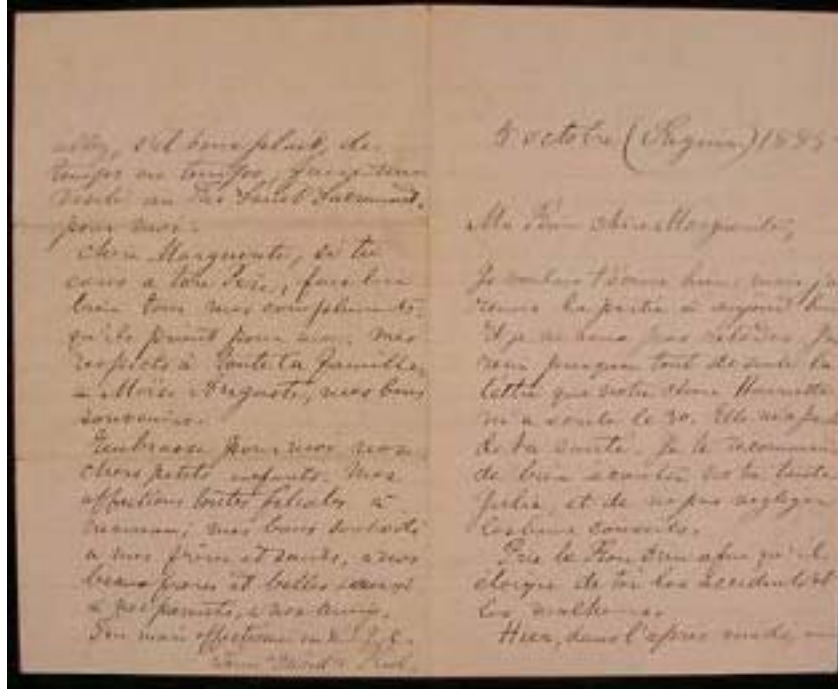 allez, s'il vous plait, de
temps en temps, faire une
visite au Très Saint Sacrement,
pour moi.
Chère Marguerite, si tu
à ton Père, fais lui
bien tous mes compliments,
qu'ils prient pour moi. Mes
respects à toute ta famille,
à Moïse Auguste, mes bons
souvenirs.
Embrasse pour moi nos
chers petits enfants. Mes
affections toutes filiales à
maman; mes bons souhaits
à mes frères et sœurs, à nos
beaux frères et belles sœurs
à nos parents, à nos amis.
Ton mari affectionné
Louis "David" Riel.
5 octobre (Regina) 1885
Ma Bien chère Marguerite,
Je voulais t'écrire hier; mais j'ai
remis la partie à aujourd'hui
Et je ne veux pas retarder. J'ai
reçu presque tout de suite la
lettre que notre chère Henriette
m'a écrite le 30. Elle m'a parlé
de ta santé. Je te recommande
de bien écouter ta tante
Julie, et de ne pas négliger
les bons conseils.
Prie le Bon Dieu afin qu'il
éloigne de toi les accidents et
les malheurs.
Hier, dans l'après midi,